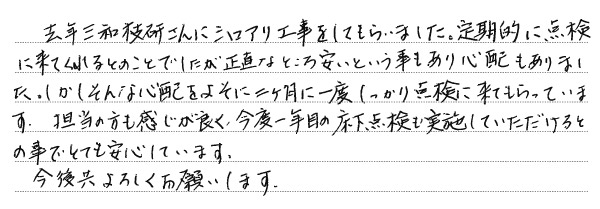 去年三和技研さんにシロアリ工事をしてもらいました。定期的に点検
に来てくれるとのことでしたが正直なところ安いという事もあり心配もありまし
た。しかしそんな心配をよそに二ヶ月に一度しっかり点検に来てもらっていま
す. 担当の方も感じが良く、今度一年目の床下点検も実施していただけると
の事でとても安心しています.
今後共よろしくお願いします.